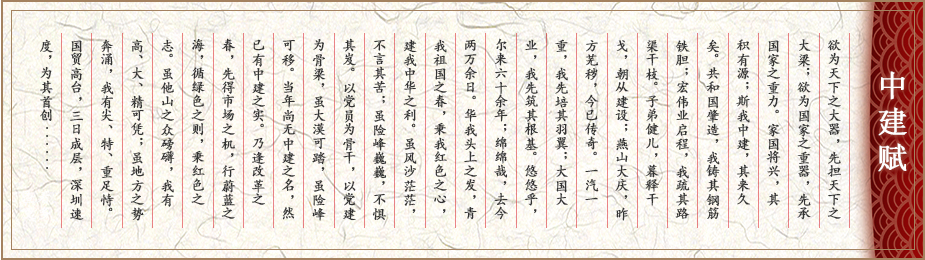 中建赋
欲为天下之大器，先担天下之
大梁；欲为国家之重器，先承
国家之重力。家国将兴，其
积有源；斯我中建，其来久
矣。共和国肇造，我铸其钢筋
铁胆；宏伟业启程，我疏其路
渠干枝。子弟健儿，暮释干
戈，朝从建设；燕山大庆，昨
方芜秽，今已传奇。一汽一
重，我先培其羽翼；大国大
业，我先筑其根基。悠悠乎，
尔来六十余年；绵绵哉，去今
两万余日。华我头上之发，青
我祖国之春，秉我红色之心，
建我中华之利。虽风沙茫茫，
不言其苦；虽险峰巍巍，不惧
其岌。以党员为骨干，以党建
为骨梁，虽大漠可踏，虽险峰
可移。当年尚无中建之名，然
已有中建之实。乃逢改革之
春，先得市场之机，行蔚蓝之
海，循绿色之则，秉红色之
志。虽他山之众磅礴，我有
高、大、精可凭；虽地方之势
奔涌，我有尖、特、重足恃。
国贸高台，三日成层，深圳速
度，为其首创......